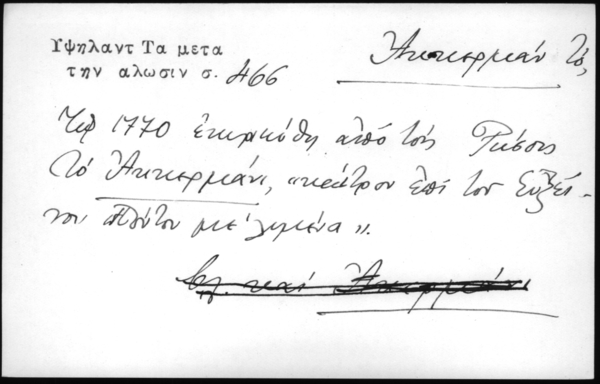 Υψηλαντ Τα μετα
την αλωσιν σ. 466
Ἀκκερμάν Τό,
Τῷ 1770 ἐκυριεύθη ἀπό τούς Ρώσους
τό Ἀκκερμάνι, "κάστρον ἐπί του Εὐξεί-
νου Πόντου με λιμένα".
βλ. καί Ἀκερμάνι